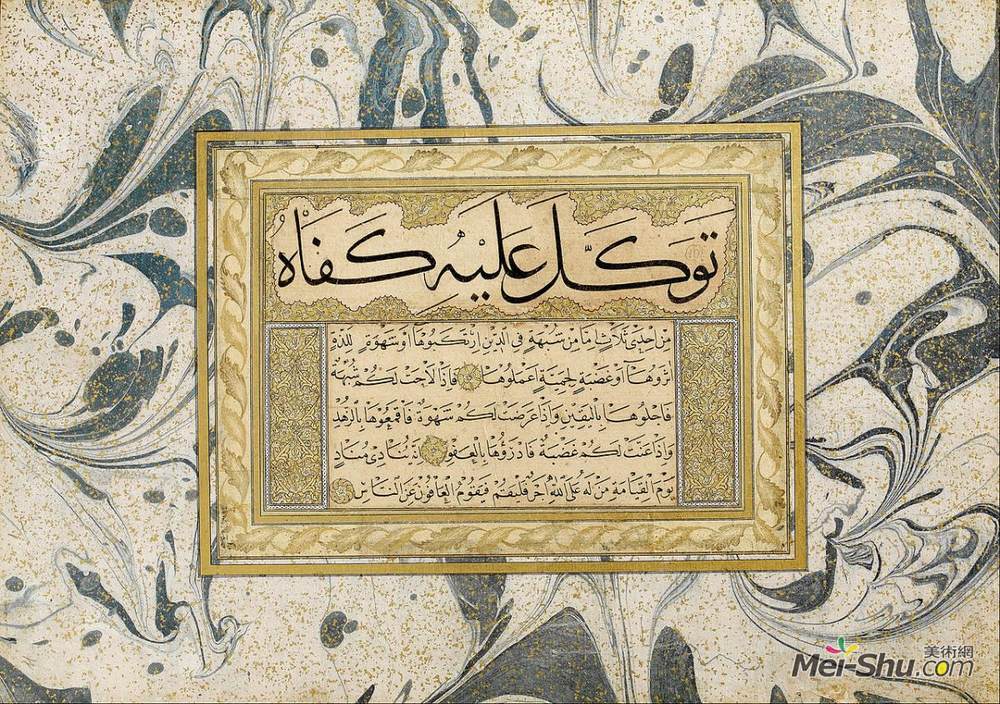 توكل عليه كفاه
من احدى ثلاث اما من شبهة في الدين ارتكبوها او شهوة للذة
اثروها او غضبة لحمية اعملوها فاذا لاحت لكم شبهة
فاجلوها باليقين واذا عرضت لكم شهوة فاقمعوها بالزهد
واذا عنت لكم غضبة فادرؤها بالعفو ينادي مناد
يوم القيامة من له على الله اجر فليقم فيقوم العافون عن الناس
美術網
Mei-Shu.com